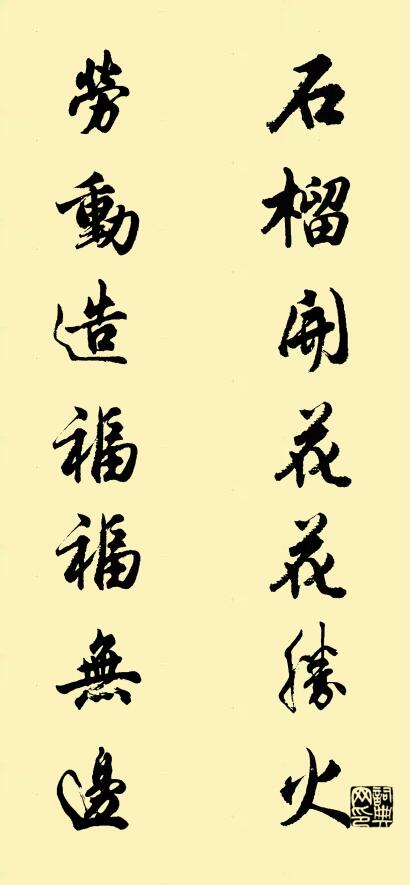 石榴開花花勝火
勞動造福福無邊
詞典網印